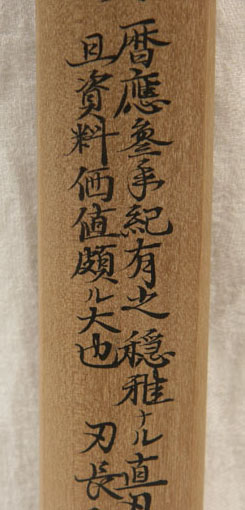 暦應参年紀有之穏雅ナル直刃
且資料価値頗ル大也 刃長